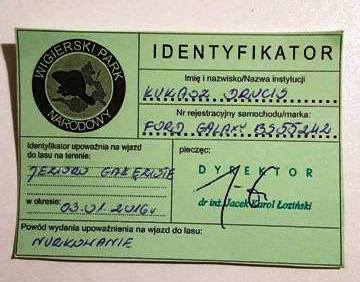 WIGIERSKI PARK
NARODOWY
IDENTYFIKATOR
Imię i nazwisko/Nazwa instytucji
ŁUKASZ
Nr rejestracyjny samochodu/marka:
FORD GALAXY BS55242
Identyfikator upoważnia na wjazd
do lasu na terenie:
JEZIORO
w okresie: 03.01.2016r
pieczęć:
DYREKTOR
dr inż. Jacek Karol Łoziński
Powód wydania upoważnienia na wjazd do lasu:
NURKOWANIE